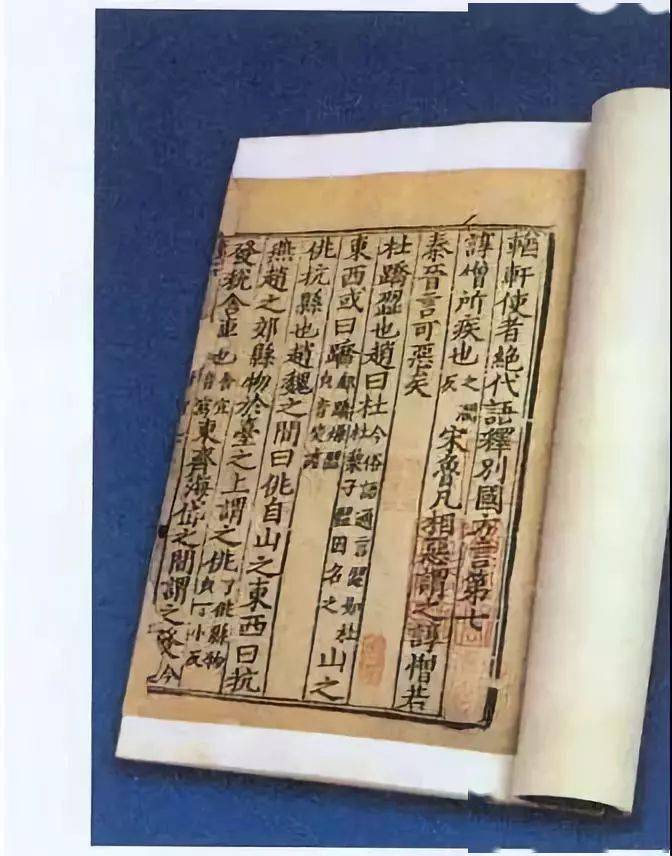 輶軒使者絕代語釋別國方言第七
諄憎所疾也之潤反宋魯凡相惡謂之諄憎若
秦晉言可惡矣
杜蹻歰也趙曰杜今俗語通言歰如杜杜棃子歰因名之山之
東西或曰蹻郤蹻燥歰皃音笑謔
佻抗縣也趙魏之間曰佻自山之東西曰抗
燕趙之郊縣物於臺之上謂之佻了佻縣物皃丁小反
發稅舍車也舍宜音寫東齊海岱之間謂之發今